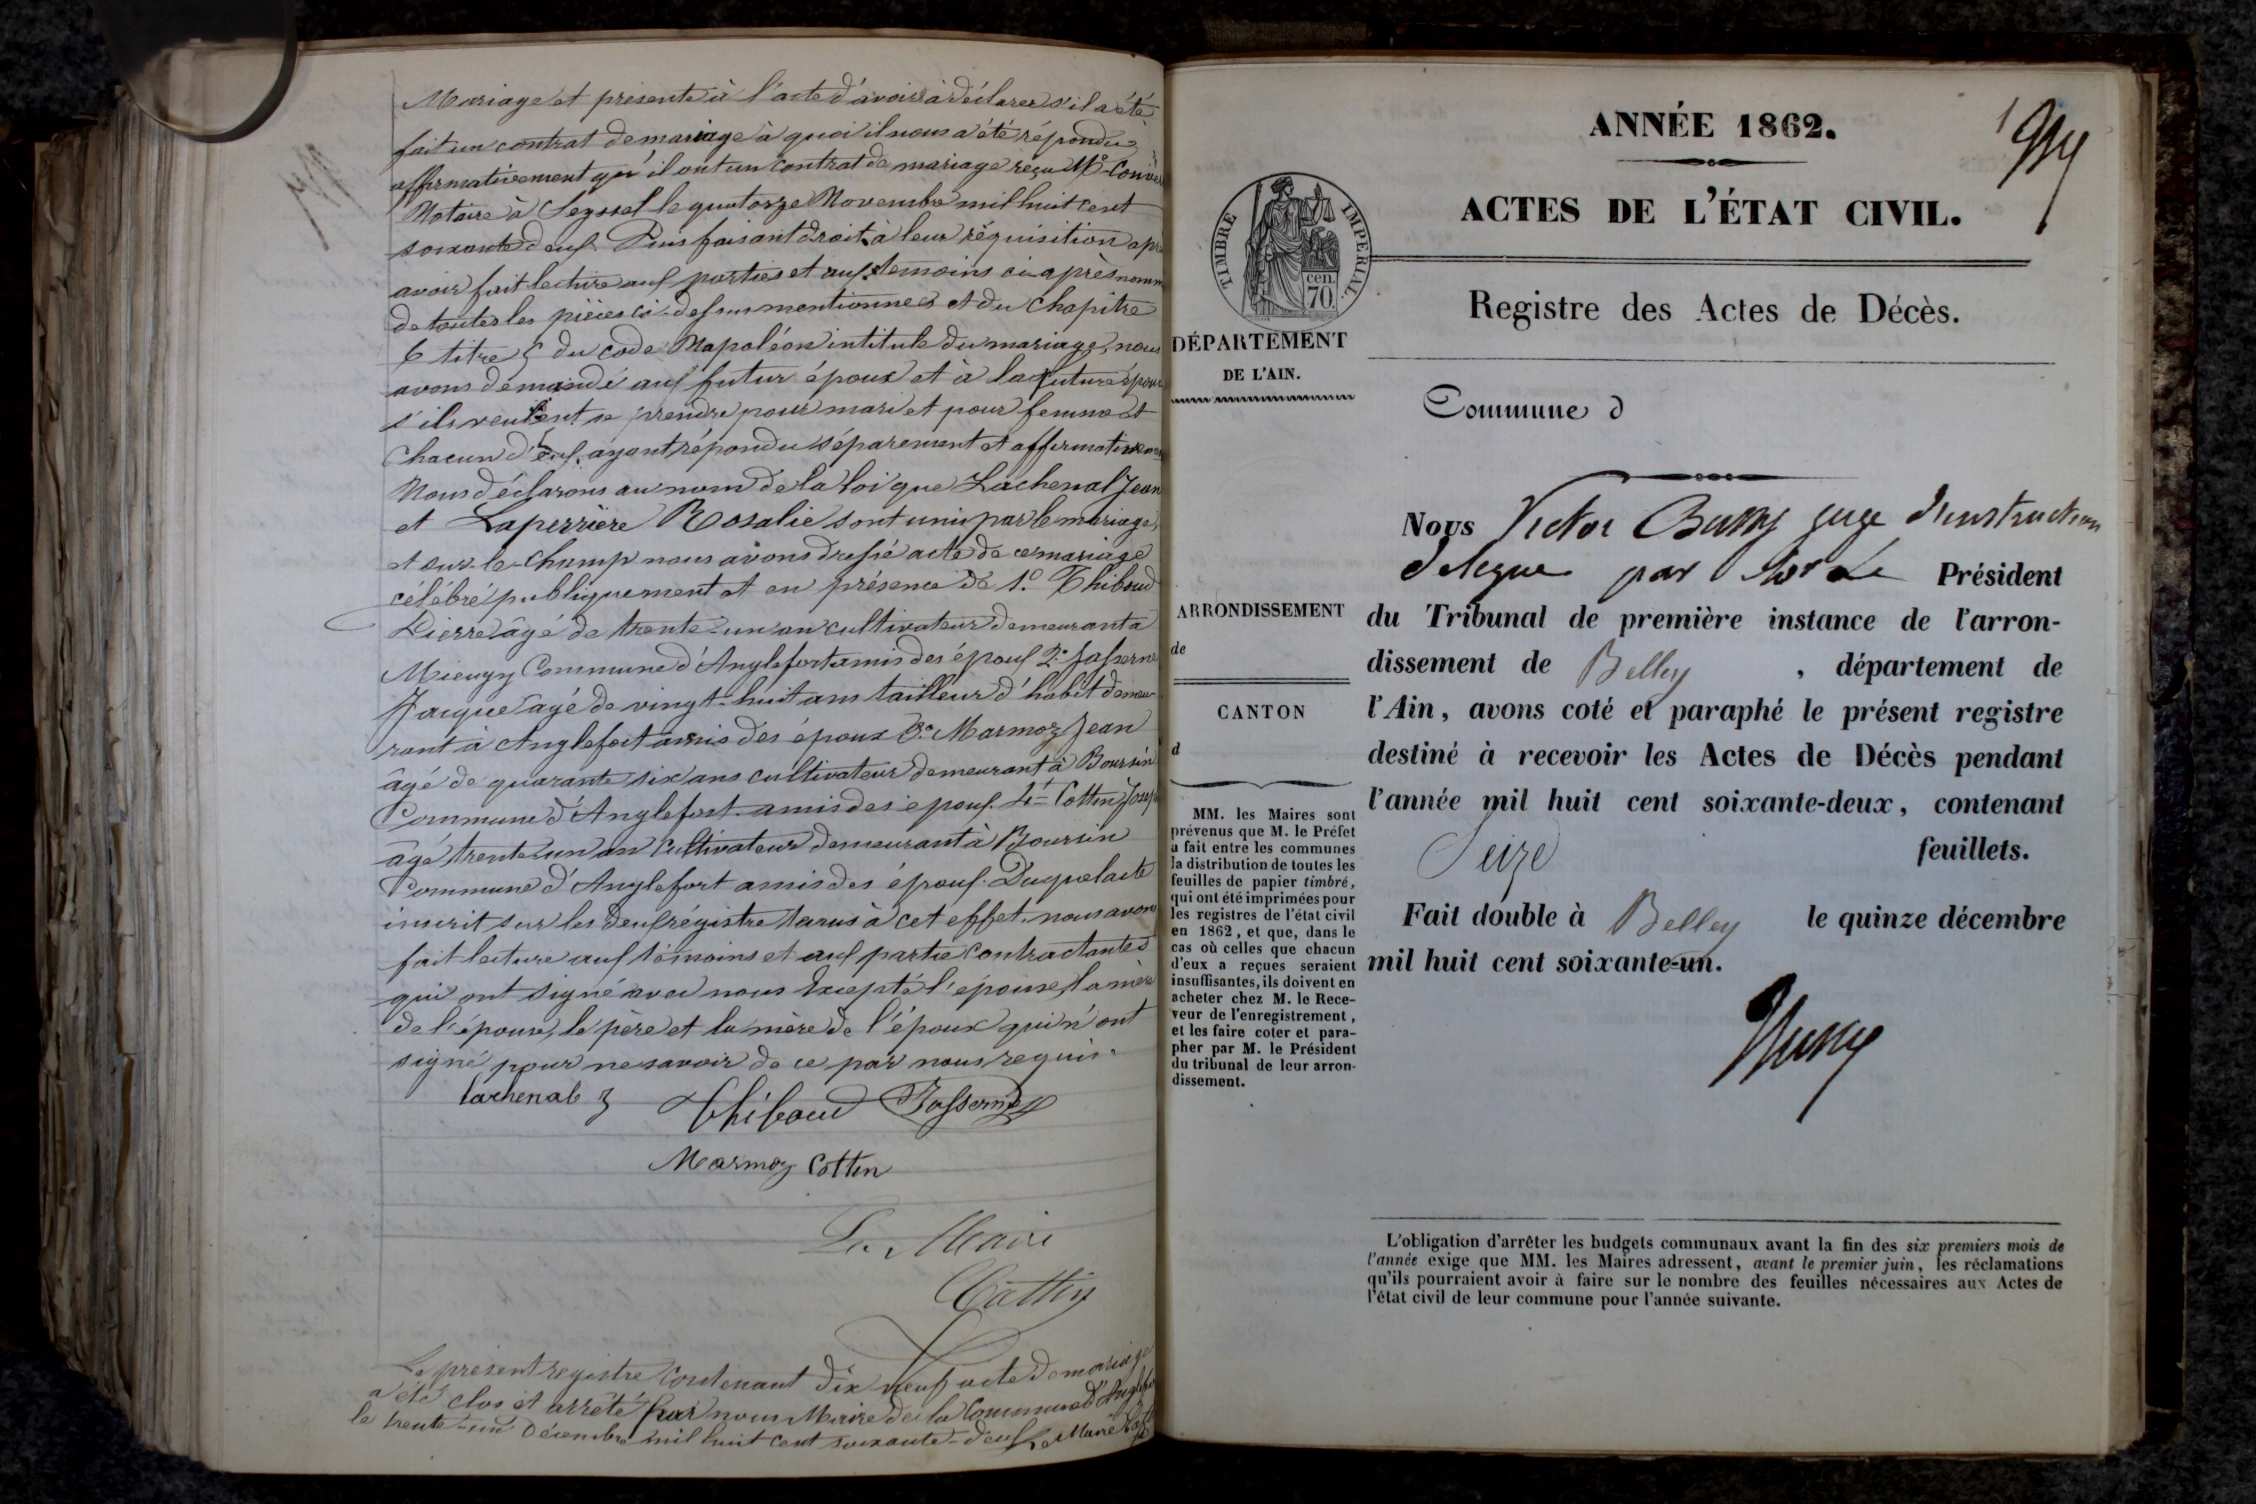 Mariage et présente à l'acte d'avoir à déclarer s'il a été
fait un contrat de mariage à quoi il nous a été répondu
affirmativement qu'il ont un contrat de mariage reçu Me
Notaire à Seyssel le quatorze Novembre mil huit cent
soixante deux. Puis faisant droit à leur réquisition apr
avoir fait lecture aux parties et aux temoins ci après nomm
de toutes les pièces ci-dessus mentionnées et du Chapitre
6 titre 5 du code Napoléon intitulé du mariage, nous
avons demandé aux futur époux et à la future épou
s'ils veulent se prendre pour mari et pour femme et
Chacun d'eux ayant répondu séparement et affirmativem
Nous déclarons au nom de la loi que Lachenal Jean
et Laperrière Rosalie sont unis par le mariage,
et sur-le-champ nous avons dressé acte de ce mariage
célébré publiquement et en présence de 1.° Thiboud
Pierre âgé de trente-un an cultivateur demeurant a
Mieugy Commune d'Anglefort amis des époux 2.° Jasserme
Jacque âgé de vingt-huit ans tailleur d'habit demeu
rant à Anglefort amis des époux 3.° Marmoz Jean
âgé de quarante six ans cultivateur demeurant à Boursin
Commune d'Anglefort amis des époux. 4.° Cottin Josep
âgé trente un an cultivateur demeurant à Boursin
Commune d'Anglefort amis des époux. Duquel acte
inscrit sur les deux régistre tenus à cet effet, nous avon
fait lecture aux témoins et aux partie contractantes
qui ont signé avec nous Excepté l'épouse, la mère
de l'épouse, le père et la mère de l'époux qui n'ont
signé pour ne savoir de ce par nous requis.
Lachenal J Thiboud Jasserme
Marmoz Cottin
Le Maire
Cattin
Le présent registre Contenant dix neuf acte de mariage
a été clos et arrêté par nous Maire de la Commune d'Anglef
le trente-un Décembre mil huit cent soixante-deux Le Maire
ANNÉE 1862.
ACTES DE L'ÉTAT CIVIL.
TIMBRE IMPÉRIAL.
cen.
70.
Registre des Actes de Décès.
DÉPARTEMENT
DE L'AIN.
Commune d
Nous Victor juge d'instruction
délégué par Mr Le Président
du Tribunal de première instance de l'arron-
dissement de Belley , département de
l'Ain, avons coté et paraphé le présent registre
destiné à recevoir les Actes de Décès pendant
l'année mil huit cent soixante-deux, contenant
Seize feuillets.
Fait double à Belley le quinze décembre
mil huit cent soixante-un.
ARRONDISSEMENT
de
CANTON
d
MM. les Maires sont
prévenus que M. le Préfet
a fait entre les communes
la distribution de toutes les
feuilles de papier timbré,
qui ont été imprimées pour
les registres de l'état civil
en 1862, et que, dans le
cas où celles que chacun
d'eux a reçues seraient
insuffisantes, ils doivent en
acheter chez M. le Rece-
veur de l'enregistrement,
et les faire coter et para-
pher par M. le Président
du tribunal de leur arron-
dissement.
L'obligation d'arrêter les budgets communaux avant la fin des six premiers mois de
l'année exige que MM. les Maires adressent, avant le premier juin, les réclamations
qu'ils pourraient avoir à faire sur le nombre des feuilles nécessaires aux Actes de
l'état civil de leur commune pour l'année suivante.